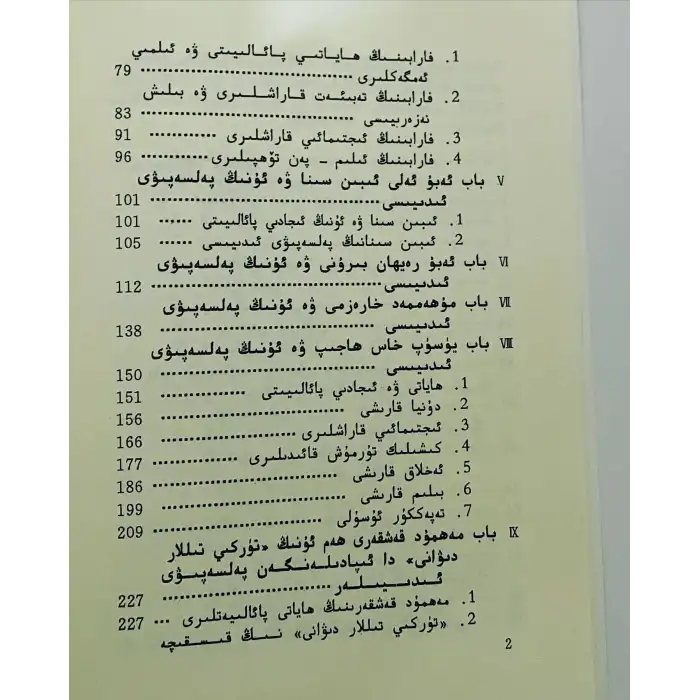 1. فارابىنىڭ ھاياتىي پائالىيىتى ۋە ئىلمىي
ئەمگەكلىرى ........................................ 79
2. فارابىنىڭ تەبىئەت قاراشلىرى ۋە بىلىش
نەزەرىيىسى ........................................ 83
3. فارابىنىڭ ئىجتىمائىي قاراشلىرى ............ 91
4. فارابىنىڭ ئىلىم - پەن تۆھپىلىرى ............ 96
V باب ئەبۇ ئەلى ئىبىن سىنا ۋە ئۇنىڭ پەلسەپىۋى
ئىدىيىسى ........................................ 101
1. ئىبىن سىنا ۋە ئۇنىڭ ئىجادىي پائالىيىتى ...... 101
2. ئىبىن سىنانىڭ پەلسەپىۋى ئىدىيىسى ...... 105
VI باب ئەبۇ رەيھان بىرۇنى ۋە ئۇنىڭ پەلسەپىۋى
ئىدىيىسى ........................................ 112
VII باب مۇھەممەد خارەزمى ۋە ئۇنىڭ پەلسەپىۋى
ئىدىيىسى ........................................ 138
VIII باب يۈسۈپ خاس ھاجىپ ۋە ئۇنىڭ پەلسەپىۋى
ئىدىيىسى ........................................ 150
1. ھاياتى ۋە ئىجادىي پائالىيىتى ................ 151
2. دۇنيا قارىشى ................................ 156
3. ئىجتىمائىي قاراشلىرى ........................ 166
4. كىشىلىك تۇرمۇش قائىدىلىرى ................ 177
5. ئەخلاق قارىشى ................................ 186
6. بىلىم قارىشى ................................ 199
7. تەپەككۇر ئۇسۇلى ................................ 209
IX باب مەھمۇد قەشقەرى ھەم ئۇنىڭ «تۈركىي تىللار
دىۋانى» دا ئىپادىلەنگەن پەلسەپىۋى
ئىدىيىلەر ........................................ 227
1. مەھمۇد قەشقەرىنىڭ ھاياتى پائالىيەتلىرى ... 227
2. «تۈركىي تىللار دىۋانى» نىڭ قىسقىچە
2